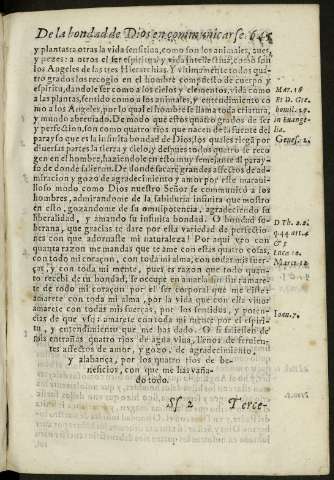 De la bondad de Dios en communicarse. 645
y plantas: a otras la vida sensitiva, como son los animales, aues,
y pezes: a otros el ser espiritual y vida intellectiua, como son
los Angeles de las tres Hierarchias. Y vltimamente todos qua-
tro grados los recogio en el hombre compuesto de cuerpo y
espiritu, dandole ser como a los cielos y elementos, vida como
a las plantas, sentido como a los animales, y entendimiento co
mo a los Angeles, por lo qual el hombre se llama toda criatura,
y mundo abreuiado. De modo que estos quatro grados de ser
y perfection, son como quatro rios que nacen de la fuente del
parayso que es la infinita bondad de Dios, los quales riega por
diuersas partes la tierra y cielo, y despues todos quatro se reco
gen en el hombre, haziendole en esto muy semejante al paray-
so de donde salieron. De donde sacarè grandes affectos de ad-
miracion, y gozo de agradecimiento y amor por este maraui-
lloso modo como Dios nuestro Señor se communicò a los
hombres, admirandome de la sabiduria infinita que mostrò
en esto, gozandome de su omnipotencia, agradeciendo su
liberalidad, y amando su infinita bondad. O bondad so-
berana, que gracias te dare por esta variedad de perfectio-
nes con que adornaste mi naturaleza? Por aqui veo con
quanta razon me mandas que te ame con estas quatro cosas,
con todo mi coraçon, con toda mi alma, con todas mis fuer-
ças, y con toda mi mente, pues es razon que todo quan-
to recebi de tu bondad, se ocupe en amarla por ser
te de todo mi coraçon por el ser corporal que me
amarete con toda mi alma, por la vida con que ella viue:
amarete con todas mis fuerças, por los sentidos, y poten-
cias de que vsa: amarete con toda mi mente por el espiri-
tu, y entendimiento que me has dado. O si saliessen de
mis entrañas quatro rios de agua viua, llenos de feruien-
tes affectos de amor, y gozo, de agradecimiento,
y alabança, por los quatro rios de be-
neficios, con que me has
todo.
Sf 2 Terce-
Mar. 16
Et D. Gre.
homil. 29.
in Euange-
lia.
Genes. 2.
D Th. 2.2.
q.44 art.4
& 5
Luca 10.
Marc. 12.
Ioan. 7.